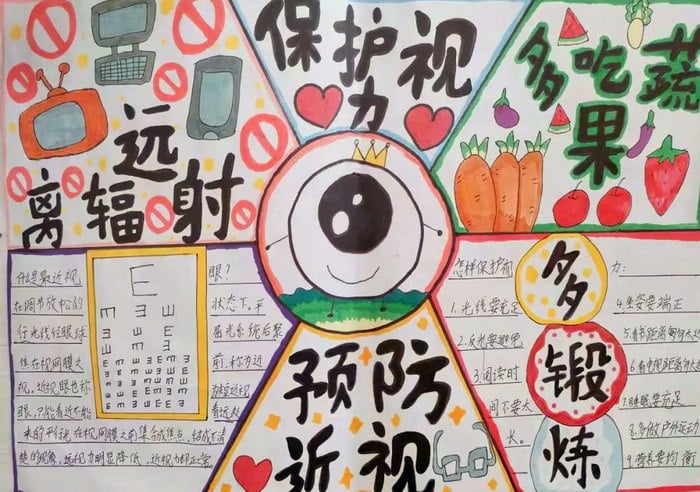 保护视
力
远
离辐射
多吃蔬
果
什是最近视 眼？
在调节放松的 状态下，平
行光线经眼球 屈光系统后聚
焦在视网膜之 前，称为近
视。近视眼也称 为短视
眼，只能看近不能 看远处
来的平行光在视网膜之前集合成焦点，结成不清
楚的现象，远视力明显降低，近视力却正常
E
预防
近视
怎样保护 力：
1.光线要充足
2.反光要避免
3.阅读时
间不要太
长。
多
锻
炼
4.坐姿要端正
5.看书距离勿太
6.看 距离勿太
7.睡眠要充足
8.多做户外运动
9.营养要均衡